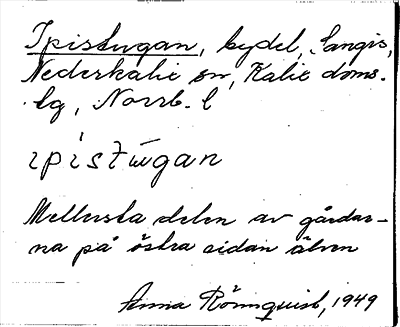 Ipistugan, bydel, Sangis,
Nederkalix sn, Kalix doms.
lg, Norrb. l
ipistugan
Mellersta delen av gårdar-
na på östra sidan älven
Anna Rönnquist, 1949